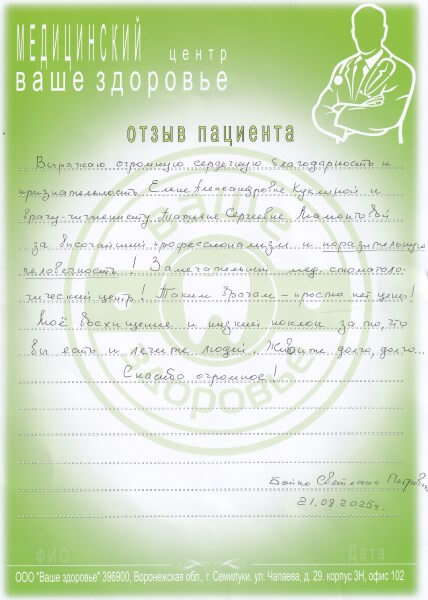 МЕДИЦИНСКИЙ центр
ваше здоровье
отзыв пациента
Выражаю огромную сердечную благодарность и
признательность Елене Александровне Куклиной и
врачу-гигиенисту Татьяне Сергеевне Мамонтовой
за высочайший профессионализм и поразительную
человечность! Замечательный мед. стоматоло-
гический центр! Таким врачам - просто нет цены!
Моё восхищение и низкий поклон за то, что
вы есть и лечите людей. Живите долго, долго...
Спасибо огромное!
Ваше
здоровье
Бойко Светлана Петровна
21.08.2025г.
ФИО Дата
ООО "Ваше здоровье" 396900, Воронежская обл., г. Семилуки. ул. Чапаева, д. 29. корпус 3Н, офис 102